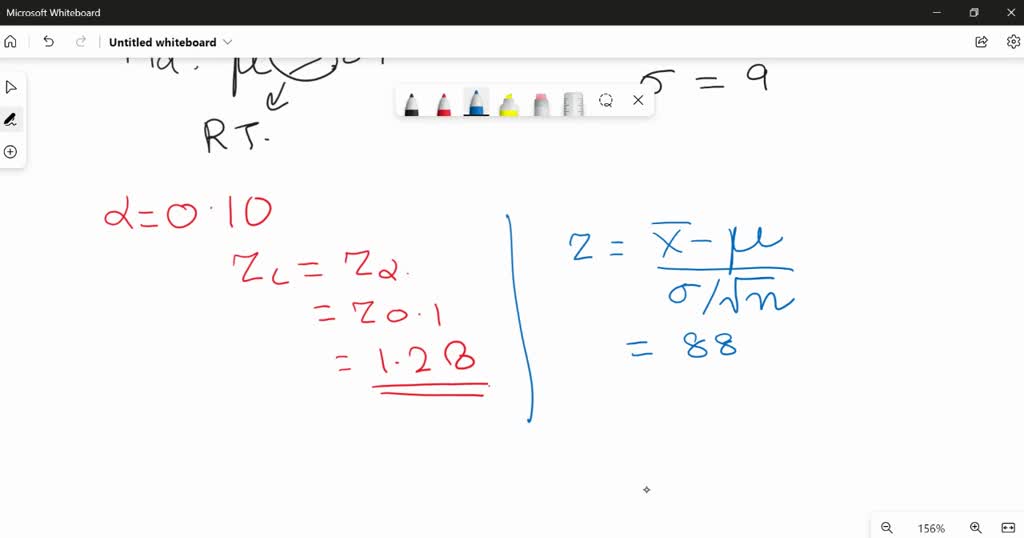 Microsoft Whiteboard
Untitled whiteboard
σ = 9
RT.
α = 0.10
Zc = Zα.
= Z0.1
= 1.28
Z = x̄ - μ
σ/√n
= 88
156%